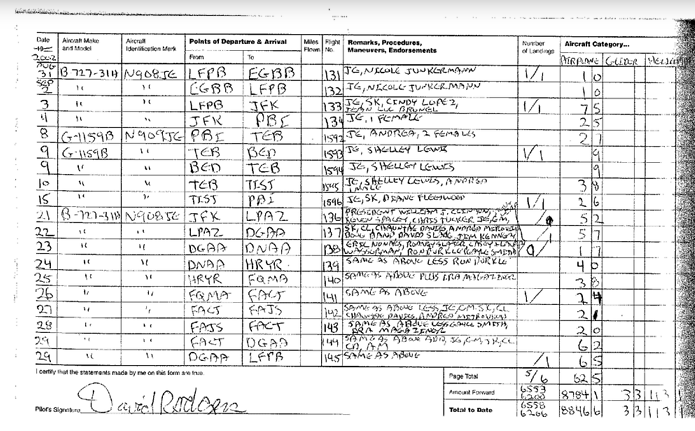 Date
Aircraft Make and Model
Aircraft Identification Mark
Points of Departure & Arrival
From
To
Miles Flown
Flight No.
Remarks, Procedures, Maneuvers, Endorsements
Number of Landings
Aircraft Category...
AIRPLANE GLIDER
2002
AUG 31 B-727-31H N908JE LFPB EGBB 131 JE, NICOLE JUNKERMANN 1/1 1 0
SEP 2 " " EGBB LFPB 132 JE, NICOLE JUNKERMANN 1 0
3 " " LFPB JFK 133 JE, SK, CINDY LOPEZ, JEAN LUC BRUNEL 1/1 7 5
4 " " JFK PBI 134 JE, 1 FEMALE 2 5
8 G-1159B N909JE PBI TEB 1592 JE, ANDREA, 2 FEMALES 2
9 G-1159B " TEB BED 1593 JE, SHELLEY LEWIS 1/1 9
9 " " BED TEB 1594 JE, SHELLEY LEWIS 9
10 " " TEB TIST 1595 JE, SHELLEY LEWIS, ANDREA 3 8
15 " " TIST PBI 1596 JE, SK, 1/1 2 6
21 B-727-31H N908JE JFK LPAZ 136 PRESIDENT WILLIAM J. CLINTON, KEVIN SPACEY, CHRIS TUCKER, JE, GM, 5 2
22 " " LPAZ DGAA 137 SK, CL, CHAUNTAE DAVIES, DOUG BAND, DAVID 5 7
23 " " DGAA DNAA 138 ERIC NONACS, 1
24 " " DNAA HRYR 139 SAME AS ABOVE LESS RON BURKLE 4 0
25 " " HRYR FQMA 140 SAME AS ABOVE PLUS IRA MAGAZINER 3 8
26 " " FQMA FACT 141 SAME AS ABOVE 1/ 2 4
27 " " FACT FAJS 142 SAME AS ABOVE LESS JE, GM, SK, CL 2
28 " " FAJS FACT 143 SAME AS ABOVE LESS GAYLE SMITH, IRA MAGAZINER 2 0
29 " " FACT DGAA 144 SAME AS ABOVE ADD JE, GM, SK, CL CD, AM 6 2
29 " " DGAA LFPB 145 SAME AS ABOVE /1 6 5
I certify that the statements made by me on this form are true.
Pilot's Signature David Rodgers
Page Total 5/6 62 5
Amount Forward 6553 6200 8784 1 3 3 113 1
Total to Date 6558 6206 8846 6 3 3 113 1